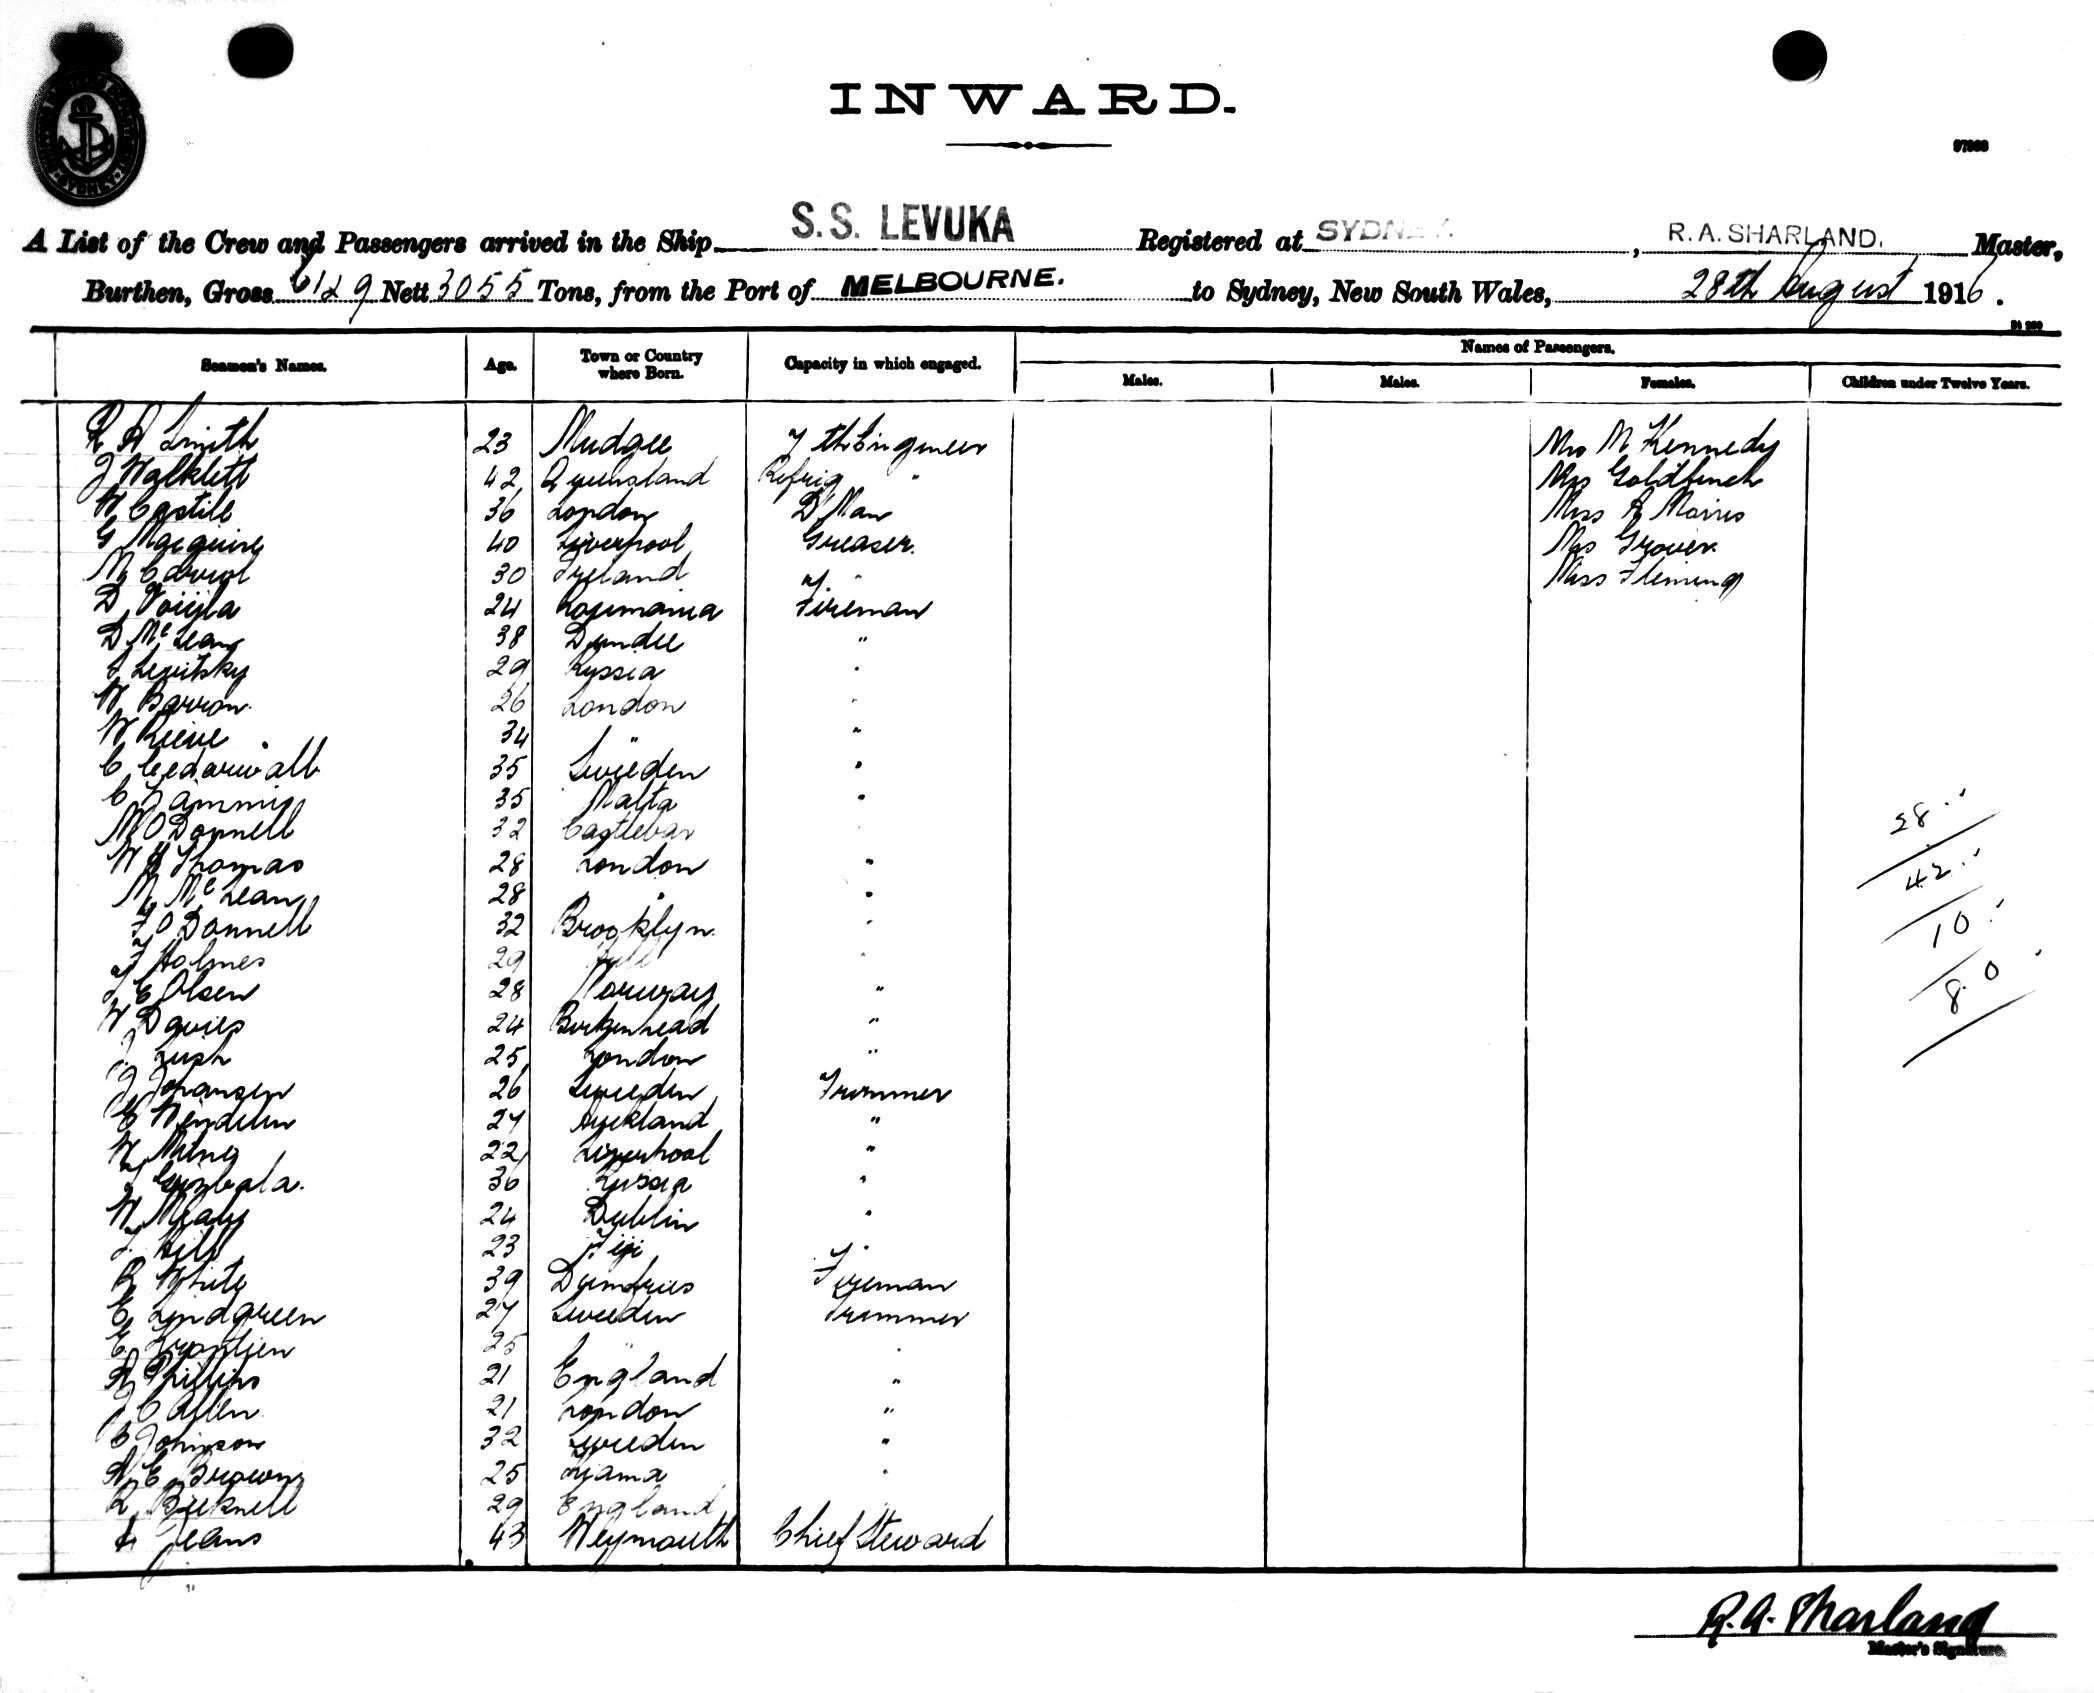 INWARD.
97983
A List of the Crew and Passengers arrived in the Ship S.S. LEVUKA Registered at SYDNEY. , R.A. SHARLAND. Master,
Burthen, Gross 6129 Nett 3055 Tons, from the Port of MELBOURNE. to Sydney, New South Wales, 28th August 1916.
Seamen's Names. Age. Town or Country where Born. Capacity in which engaged. Names of Passengers.
Males. Males. Females. Children under Twelve Years.
R A Smith 23 Mudgee 7th Engineer Mrs M Kennedy
J Walklett 42 Queensland Refrig " Mrs Goldfinch
W Castile 36 London D Man Miss A Morris
G Macguire 40 Liverpool Greaser. Mrs Grover
M Carrol 30 Ireland " Miss Fleming
D 24 Roumania Fireman
D McLean 38 Dundee "
Levitsky 29 Russia "
W Barron. 26 London "
W Reeve 34 " "
C Cedarwall 35 Sweeden "
C Zammit 35 Malta "
M O Donnell 32 Castlebar
W Thomas 28 London "
M McLean 28 " "
F O Donnell 32 Brooklyn. "
F Holmes 29 Hull "
C Olsen 28 Norway "
W Davies 24 Birkenhead "
J. Lush 25 London "
J Johansen 26 Sweeden Trimmer
C Wendelin 27 Auckland "
W Milne 22 Liverpool "
36 Russia "
W Mealy 24 Dublin "
J. Hill 23 Fiji "
R White 39 Dumfries Fireman
C Lindgreen 27 Sweeden Trimmer
C 25 " "
A Phillips 21 England "
J C Allen 21 London "
C Johnson 32 Sweeden "
A C Brown 25 "
R Bicknell 29 England
Jeans 43 Weymouth Chief Steward
58
42
10
80
R.A. Sharland
Master's Signature.